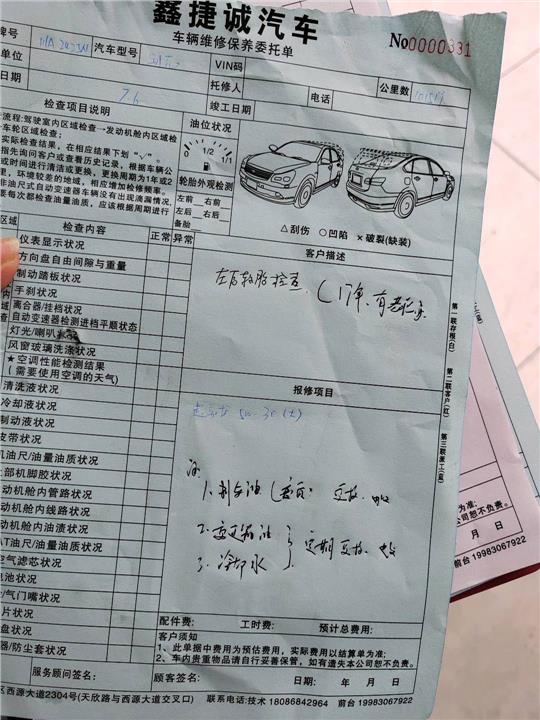 鑫捷诚汽车
车辆维修保养委托单
No0000331
牌号
汽车型号
VIN码
单位
托修人
电话
公里数
日期
7.6
竣工日期
检查项目说明
油位状况
流程:驾驶室内区域检查→发动机舱内区域检
车轮区域检查;
实际检查结果,在相应结果下划“√”。
指先询问客户或查看历史记录,根据车辆公
或时间进行清洁或更换,更换周期为1年或2
里,环境较差的地域,相应增加检修频率。
非油尺式自动变速器车辆没有出现滴漏情况,
要每次都检查油量油质,应该根据周期进行
0 1/2 1/1
轮胎外观检测
左前 右前
左后 右后
备胎
△刮伤 ○凹陷 × 破裂(缺装)
区域 检查内容 正常 异常
客户描述
仪表显示状况
方向盘自由间隙与重量
制动踏板状况
手刹状况
离合器/挂档状况
自动变速器检测进档平顺状态
灯光/喇叭状况
风窗玻璃洗涤状况
★空调性能检测结果
(需要使用空调的天气)
清洗液状况
冷却液状况
制动液状况
皮带状况
机油尺/油量油质状况
上部机脚胶状况
动机舱内管路状况
动机舱内线路状况
动机舱内油渍状况
AT油尺/油量油质状况
空气滤芯状况
电池状况
/气门嘴状况
片状况
盘状况
器/防尘套状况
左后轮胎检查
报修项目
5w-30
1、刹车油
2、变速箱油 定期更换
3、冷却水
第一联存根(白)
第二联客户(红)
第三联派工(蓝)
配件费: 工时费: 预计总费用:
客户须知
1、此单据中费用为预估费用,实际费用以结算单为准;
2、车内贵重物品请自行妥善保管,如有遗失本公司恕不负责。
服务顾问签名: 顾客签名: 日期: 年 月 日
区西源大道2304号(天欣路与西源大道交叉口) 联系电话:技术 18086842964 前台 19983067922
为准;
公司恕不负责。
月 日
前台 19983067922